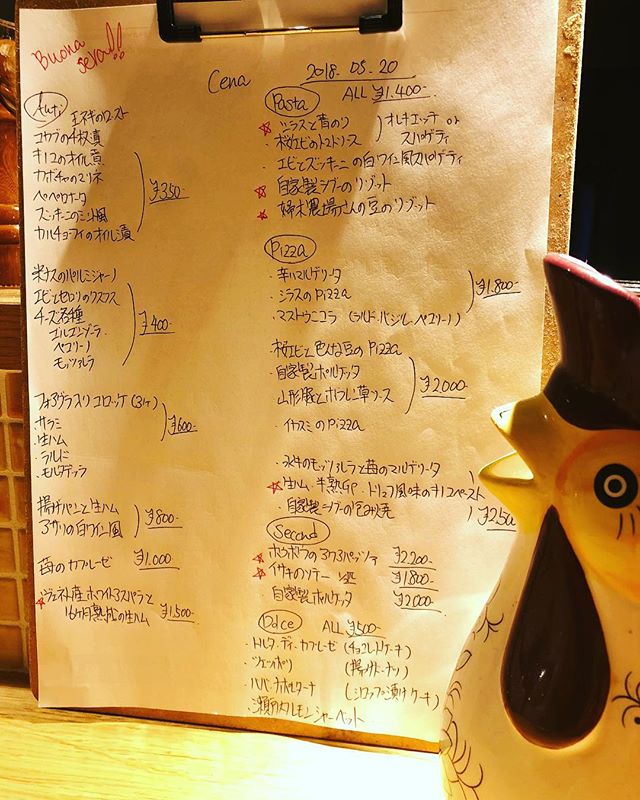 Buona sera!!
Cena
2018. 05. 20
Anti
玉ネギのロースト
コカブの4枚漬
キノコのオイル漬
カボチャのマリネ
ペペロナータ
ズッキーニのミント風
カルチョーフィのオイル漬
¥350-
米ナスのパルミジャーノ
エビとセロリのクスクス
チーズ各種
ゴルゴンゾーラ
ペコリーノ
モッツァレラ
¥400-
フォアグラ入りコロッケ(3ケ)
サラミ
生ハム
ラルド
モルタデッラ
¥600-
揚げパンと生ハム
アサリの白ワイン風
¥800-
苺のカプレーゼ ¥1.000-
☆ヴェネト産ホワイトアスパラと
16ヶ月熟成の生ハム ¥1,500-
Pasta ALL ¥1.400-
☆シラスと苺のり
・桜エビのトマトソース
オレキエッテ or
スパゲティ
・エビとズッキーニの白ワイン風スパゲティ
☆自家製
のリゾット
☆婦木農場さんの豆のリゾット
Pizza
・辛いマルゲリータ
・シラスのPizza
・マストゥニコラ (ラルド、バジル、ペコリーノ)
¥1.800-
・桜エビと色んな豆のPizza
・自家製ポルケッタ
・山形豚とホウレン草ソース
・イカスミのPizza
¥2000-
・水牛のモッツァレラと苺のマルゲリータ
☆生ハム・半熟卵・トリュフ風味のキノコペースト
・自家製
の包み焼
Second
☆ホウボウのアクアパッツァ ¥2.200-
☆イサキのソテー ¥1800-
自家製ポルケッタ ¥2000-
Dolce ALL ¥500-
・トルタ・ディ・カプレーゼ (チョコレートケーキ)
・ゼッポリ (揚げドーナツ)
・ババ・ナポレターナ (シロップ漬けケーキ)
・瀬戸内レモンシャーベット